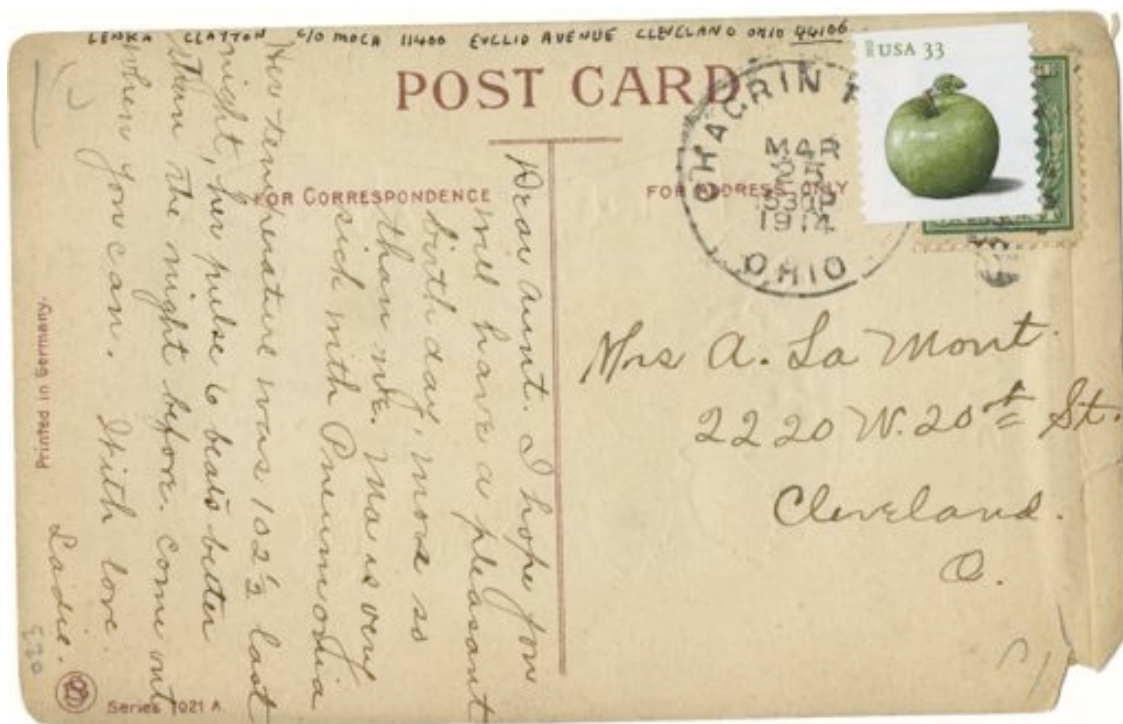 LENKA CLAYTON C/O MOCA 11400 EUCLID AVENUE CLEVELAND OHIO 44106
POST CARD
FOR CORRESPONDENCE
FOR ADDRESS ONLY
USA 33
CHAGRIN
MAR
530P
1914
OHIO
Dear Aunt. I hope you
will have a pleasant
birthday, more so
than me. Ma is very
sick with Pneumonia
Her temperature was 102⅔ last
night, her pulse 6 beats better
than the night before. Come out
when you can. With love.
Ladie.
Mrs A. La Mont.
2220 W. 20th St.
Cleveland.
O.
Printed in Germany.
Series 1021 A.